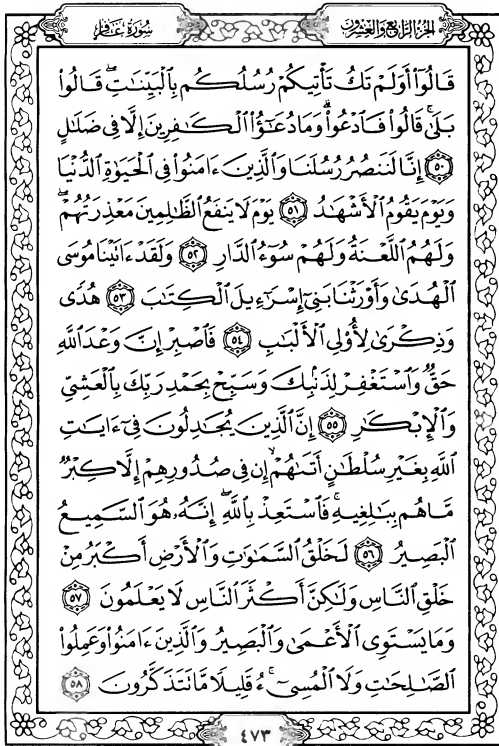 الجزء الرابع والعشرون
سورة غافر
قَالُوٓا۟ أَوَلَمْ تَكُ تَأْتِيكُمْ رُسُلُكُم بِٱلْبَيِّنَٰتِ ۖ قَالُوا۟
بَلَىٰ ۚ قَالُوا۟ فَٱدْعُوا۟ ۗ وَمَا دُعَٰٓؤُا۟ ٱلْكَٰفِرِينَ إِلَّا فِى ضَلَٰلٍ
٥٠ إِنَّا لَنَنصُرُ رُسُلَنَا وَٱلَّذِينَ ءَامَنُوا۟ فِى ٱلْحَيَوٰةِ ٱلدُّنْيَا
وَيَوْمَ يَقُومُ ٱلْأَشْهَٰدُ ٥١ يَوْمَ لَا يَنفَعُ ٱلظَّٰلِمِينَ مَعْذِرَتُهُمْ ۖ
وَلَهُمُ ٱللَّعْنَةُ وَلَهُمْ سُوٓءُ ٱلدَّارِ ٥٢ وَلَقَدْ ءَاتَيْنَا مُوسَى
ٱلْهُدَىٰ وَأَوْرَثْنَا بَنِىٓ إِسْرَٰٓءِيلَ ٱلْكِتَٰبَ ٥٣ هُدًى
وَذِكْرَىٰ لِأُو۟لِى ٱلْأَلْبَٰبِ ٥٤ فَٱصْبِرْ إِنَّ وَعْدَ ٱللَّهِ
حَقٌّ وَٱسْتَغْفِرْ لِذَنۢبِكَ وَسَبِّحْ بِحَمْدِ رَبِّكَ بِٱلْعَشِىِّ
وَٱلْإِبْكَٰرِ ٥٥ إِنَّ ٱلَّذِينَ يُجَٰدِلُونَ فِىٓ ءَايَٰتِ
ٱللَّهِ بِغَيْرِ سُلْطَٰنٍ أَتَىٰهُمْ ۙ إِن فِى صُدُورِهِمْ إِلَّا كِبْرٌ
مَّا هُم بِبَٰلِغِيهِ ۚ فَٱسْتَعِذْ بِٱللَّهِ ۖ إِنَّهُۥ هُوَ ٱلسَّمِيعُ
ٱلْبَصِيرُ ٥٦ لَخَلْقُ ٱلسَّمَٰوَٰتِ وَٱلْأَرْضِ أَكْبَرُ مِنْ
خَلْقِ ٱلنَّاسِ وَلَٰكِنَّ أَكْثَرَ ٱلنَّاسِ لَا يَعْلَمُونَ ٥٧
وَمَا يَسْتَوِى ٱلْأَعْمَىٰ وَٱلْبَصِيرُ وَٱلَّذِينَ ءَامَنُوا۟ وَعَمِلُوا۟
ٱلصَّٰلِحَٰتِ وَلَا ٱلْمُسِىٓءُ ۚ قَلِيلًا مَّا تَتَذَكَّرُونَ ٥٨
٤٧٣